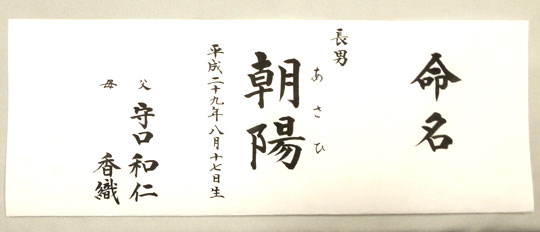 命名
長男
朝陽
あさひ
平成二十九年八月十七日生
父 守口和仁
母 香織